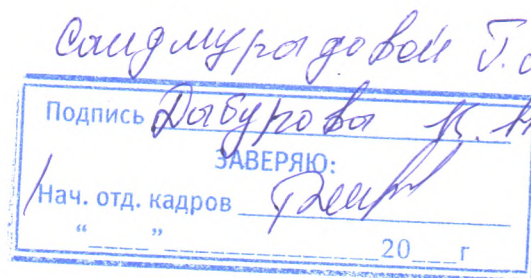 Саидмурадовой Г.
Подпись Дибурова К.
ЗАВЕРЯЮ:
Нач. отд. кадров
“____”____________20___г